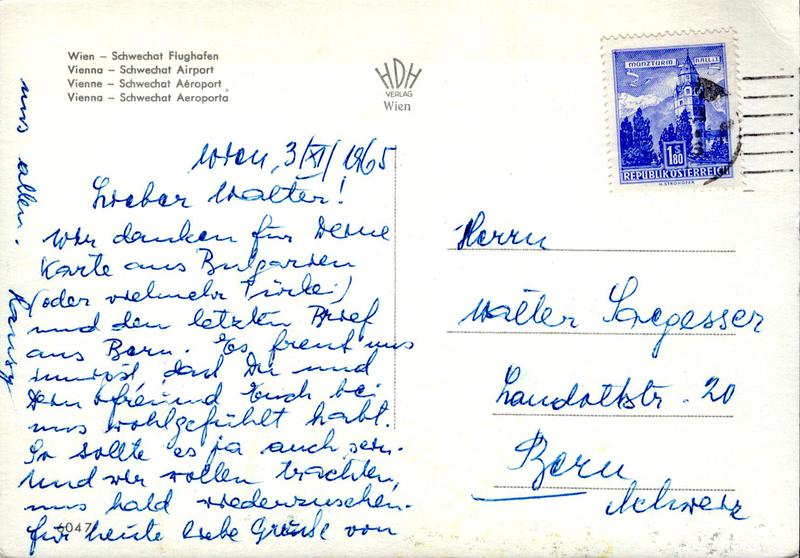 Wien – Schwechat Flughafen
Vienna – Schwechat Airport
Vienne – Schwechat Aéroport
Vienna – Schwechat Aeroporta
HDH
VERLAG
Wien
MÜNZTURM HALL i. T.
1.80 S
REPUBLIK ÖSTERREICH
Wien, 3/XI/1965
Lieber Walter!
Wir danken für Deine
Karte aus Bulgarien
(oder vielmehr Türkei)
und den letzten Brief
aus Bern. Es freut uns
, daß Du und
Dein Freund Euch bei
uns wohlgefühlt habt.
So sollte es ja auch sein.
Und wir wollen trachten,
uns bald wiederzusehen.
Für heute liebe Grüße von
uns allen.
Herrn
Walter Saegesser
Landoltstr. 20
Bern
Schweiz
6047